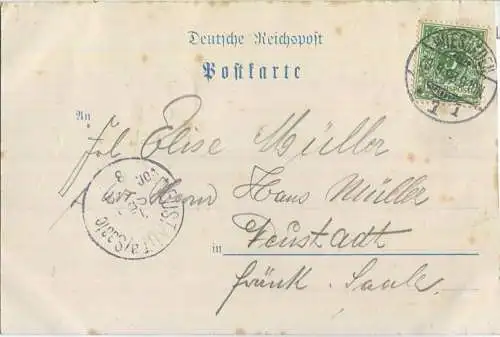 Deutsche Reichspost
Postkarte
An
Frl Elise Müller
Herrn Hans Müller
in Neustadt
fränk. Saale